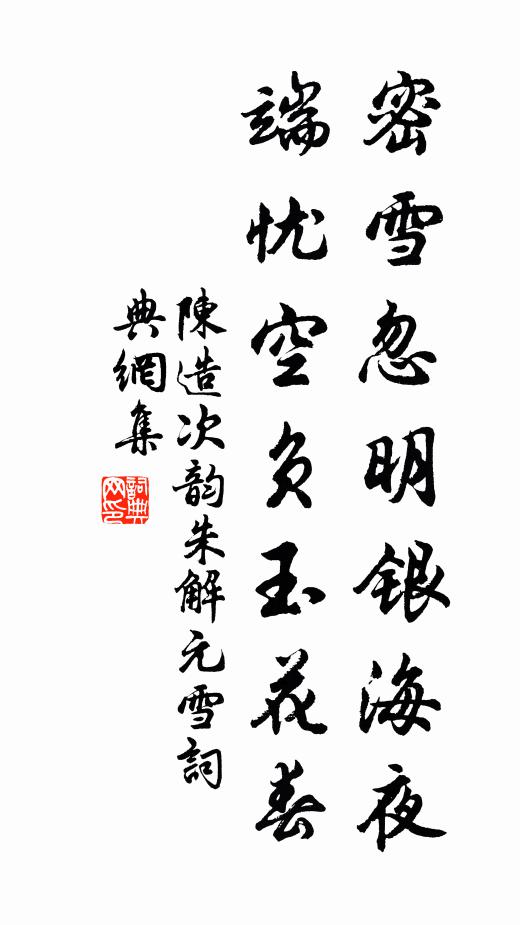 密雪忽明银海夜
端忧空负玉花春
陳造次韵朱解元雪詞
典網集
詞典网印